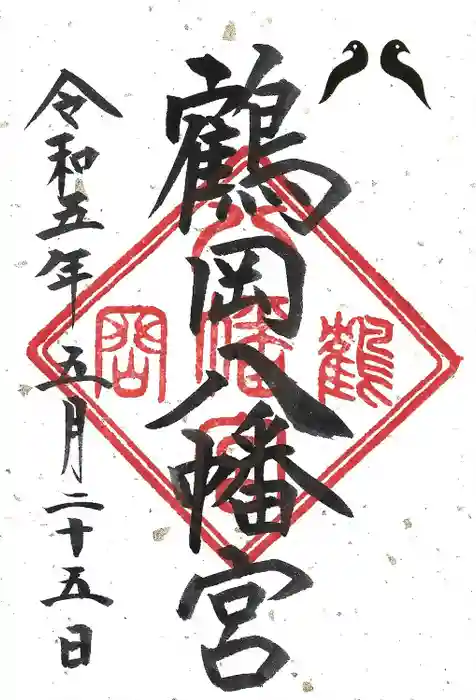 鶴岡八幡宮
令和五年五月二十五日
鶴
岡